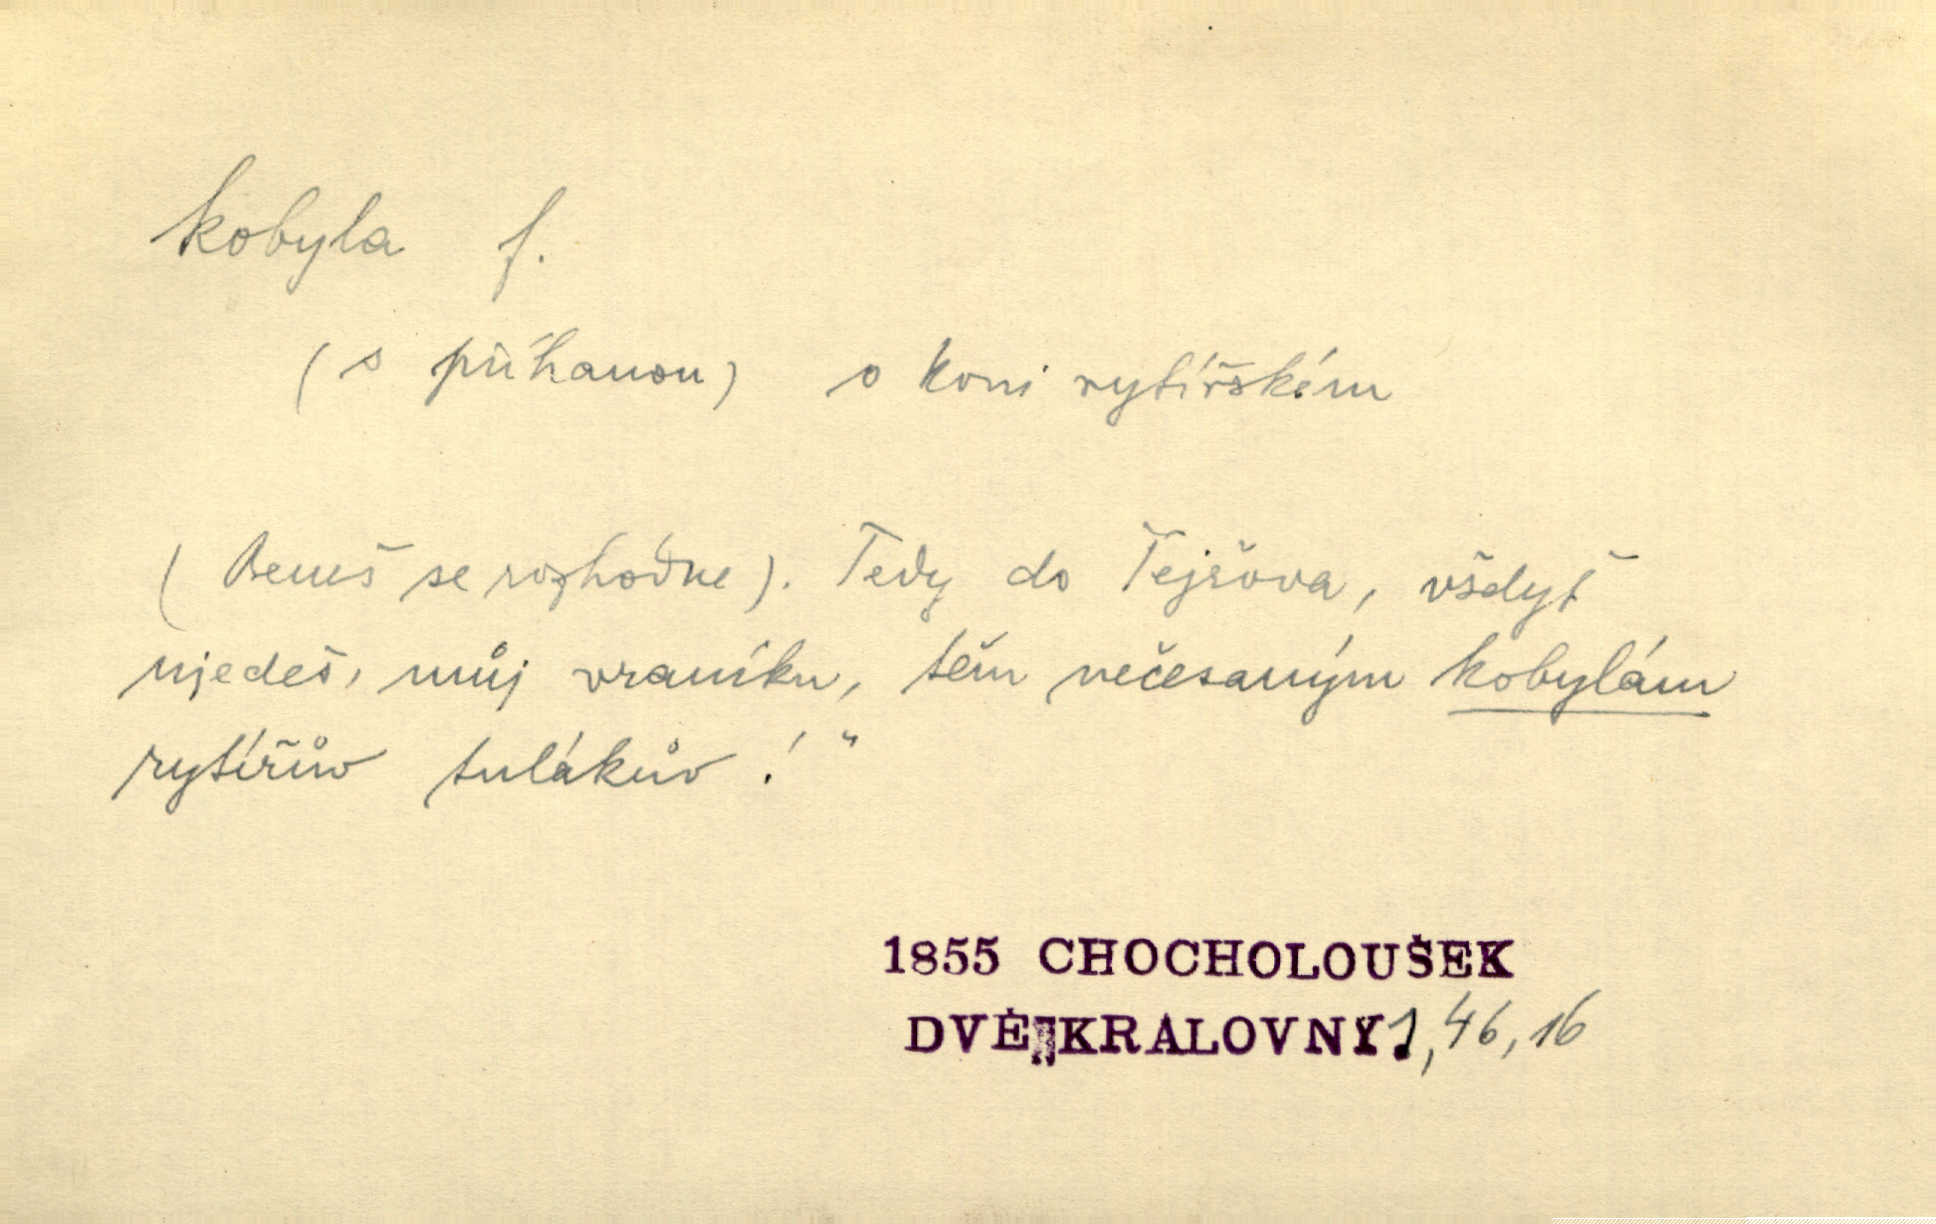 kobyla f.
(s příhanou) o koni rytířském
(Beneš se rozhodne). Tedy do Tejřova, všdyť
ujedeš, můj vraníku, těm nečesaným kobylám
rytířův tulákův!“
1855 CHOCHOLOUŠEK
DVĚ KRALOVNY 1, 46, 16